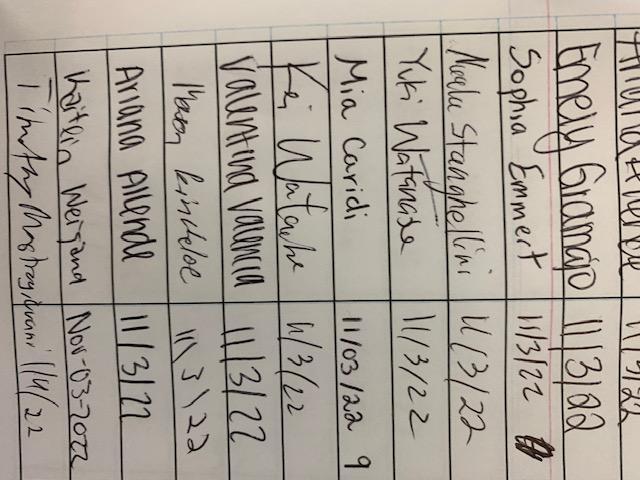 Emely Gramajo 11/3/22
Sophia Emmert 11/3/22
Stanghellini 11/3/22
Yuki Watanabe 11/3/22
Mia Caridi 11/03/22 9
Kei 11/3/22
Valentina Valencia 11/3/22
11/3/22
Ariana Allende 11/3/22
Kaitlin Weigand Nov-03-2022
Timothy 11/4/22